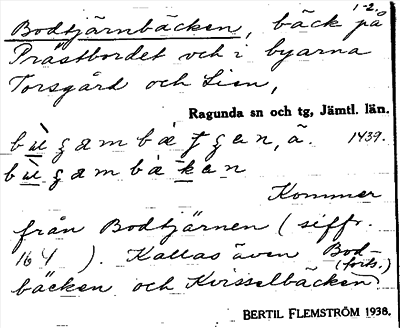 1-2.
Bodtjärnbäcken, bäck på
Prästbordet och i byarna
Torsgård och Lien,
Ragunda sn och tg, Jämtl. län.
1439.
Kommer
från Bodtjärnen (siffr.
164 ). Kallas även Bod-
(forts.)
bäcken och Kvisselbäcken.
BERTIL FLEMSTRÖM 1938.